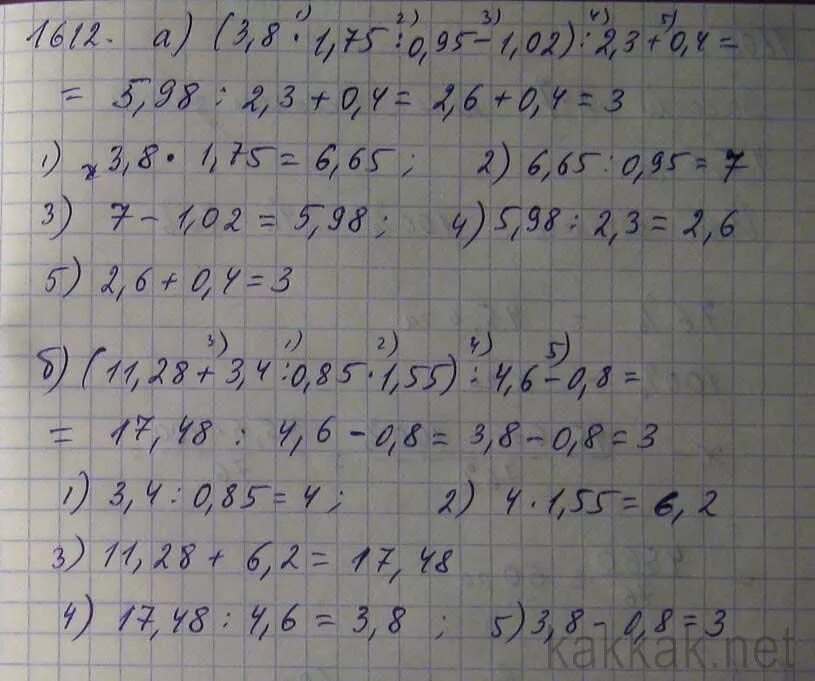 1612. а) (3,8 · 1,75 : 0,95 - 1,02) : 2,3 + 0,4 =
1) 2) 3) 4) 5)
= 5,98 : 2,3 + 0,4 = 2,6 + 0,4 = 3
1) 3,8 · 1,75 = 6,65 ; 2) 6,65 : 0,95 = 7
3) 7 - 1,02 = 5,98 ; 4) 5,98 : 2,3 = 2,6
5) 2,6 + 0,4 = 3
3) 1) 2) 4) 5)
б) (11,28 + 3,4 : 0,85 · 1,55) : 4,6 - 0,8 =
= 17,48 : 4,6 - 0,8 = 3,8 - 0,8 = 3
1) 3,4 : 0,85 = 4 ; 2) 4 · 1,55 = 6,2
3) 11,28 + 6,2 = 17,48
4) 17,48 : 4,6 = 3,8 ; 5) 3,8 - 0,8 = 3
kakkak.net